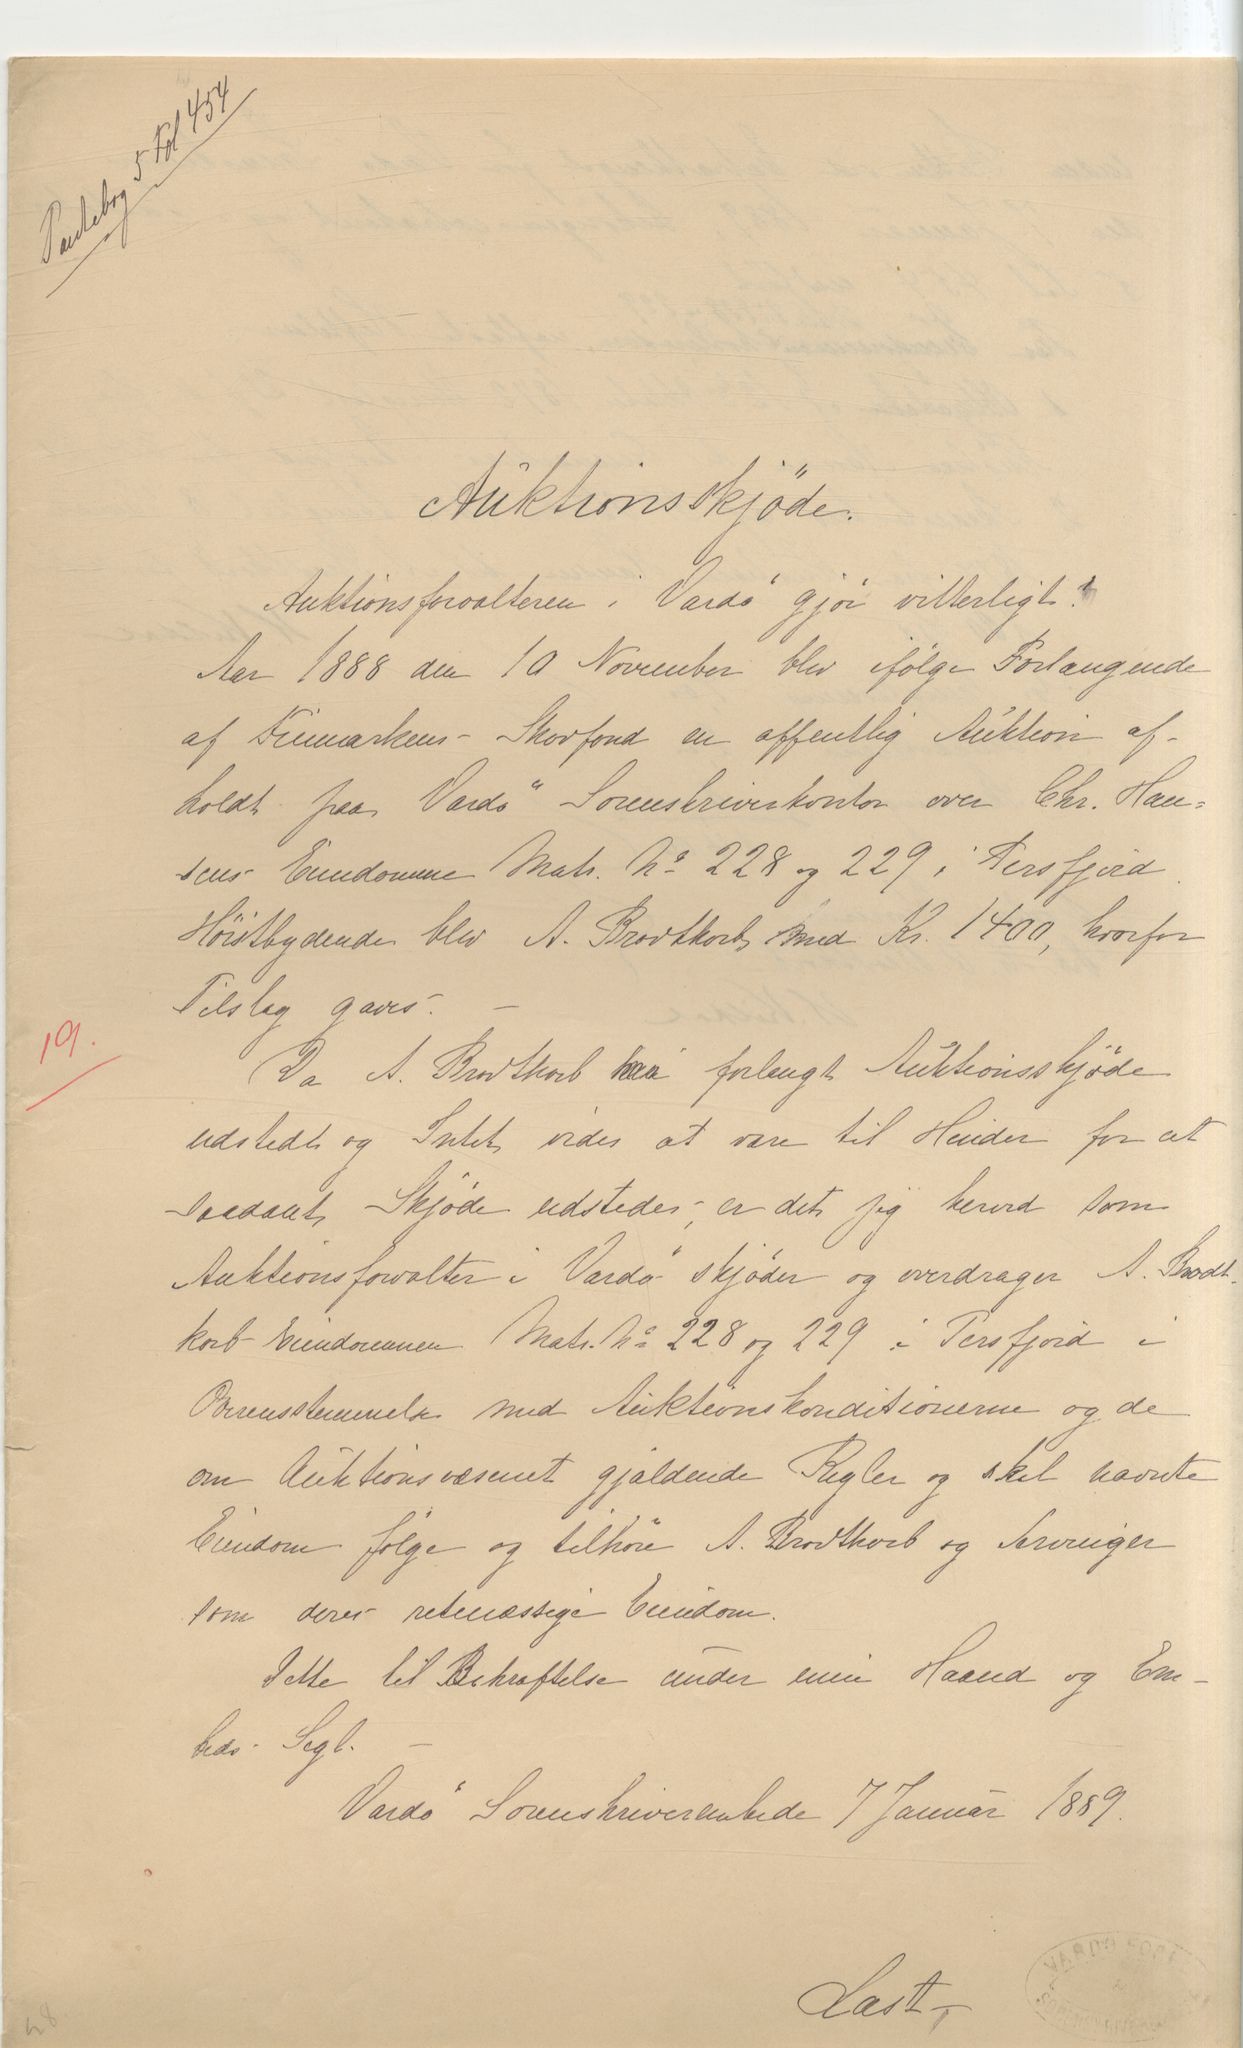 Pantebog 5 Fol 454
Auktionsskjöde.
Auktionsforvalteren i Vardö gjör vitterligt:
Aar 1888 den 10 November blev ifölge Forlangende
af Finmarkens Skovfond en offentlig Auktion af-
holdt paa Vardö Sorenskriverkontor over Chr. Han-
sens Eiendomme Matr. No 228 og 229 i Persfjord.
Höistbydende blev A. Brodtkorb med Kr. 1400, hvorfor
Tilslag gaves. —
Da A. Brodtkorb har forlangt Auktionsskjöde
udstedt og Intet vides at være til Hinder for at
saadant Skjöde udstedes, er det jeg herved som
Auktionsforvalter i Vardö skjöder og overdrager A. Brodt-
korb Eiendommen Matr. No 228 og 229 i Persfjord i
Overensstemmelse med Auktionskonditionerne og de
om Auktionsvæsenet gjældende Regler og skal nævnte
Eiendom fölge og tilhöre A. Brodtkorb og Arvinger
som deres retmæssige Eiendom.
Dette til Bekræftelse under min Haand og Em-
beds Segl. —
Vardö Sorenskriverembede 7 Januar 1889.
Læst
19.